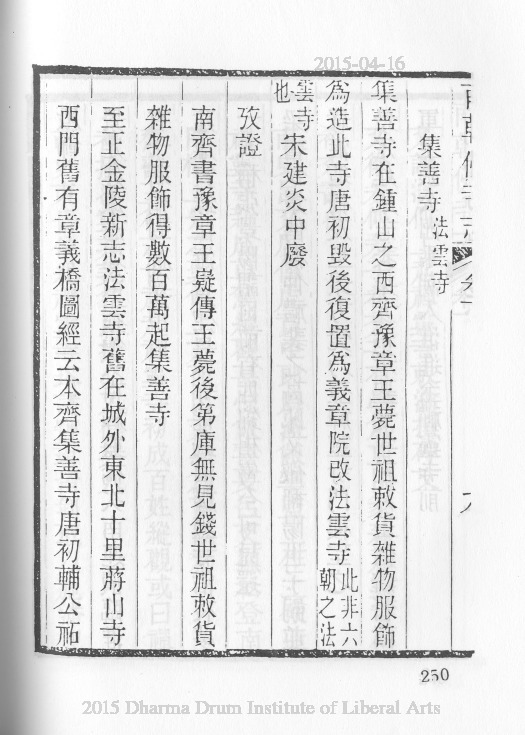 2015-04-16
集善寺 法雲寺
集善寺在鍾山之西齊豫章王薨世祖敕貨雜物服飾
為造此寺唐初毀後復置為義章院改法雲寺此非六朝之法
雲寺也宋建炎中廢
攷證
南齊書豫章王嶷傳王薨後第庫無見錢世祖敕貨
雜物服飾得數百萬起集善寺
至正金陵新志法雲寺舊在城外東北十里蔣山寺
西門舊有章義橋圖經云本齊集善寺唐初輔公祏
250
2015 Dharma Drum Institute of Liberal Arts